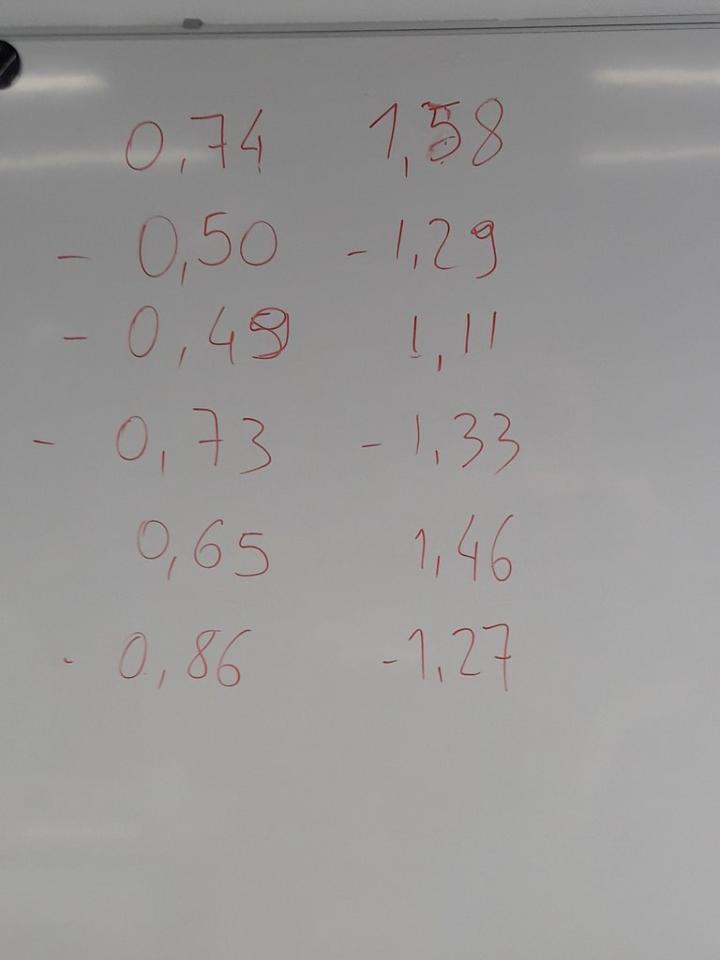 0,74 1,58
- 0,50 - 1,29
- 0,49 1,11
- 0,73 - 1,33
0,65 1,46
- 0,86 - 1,27